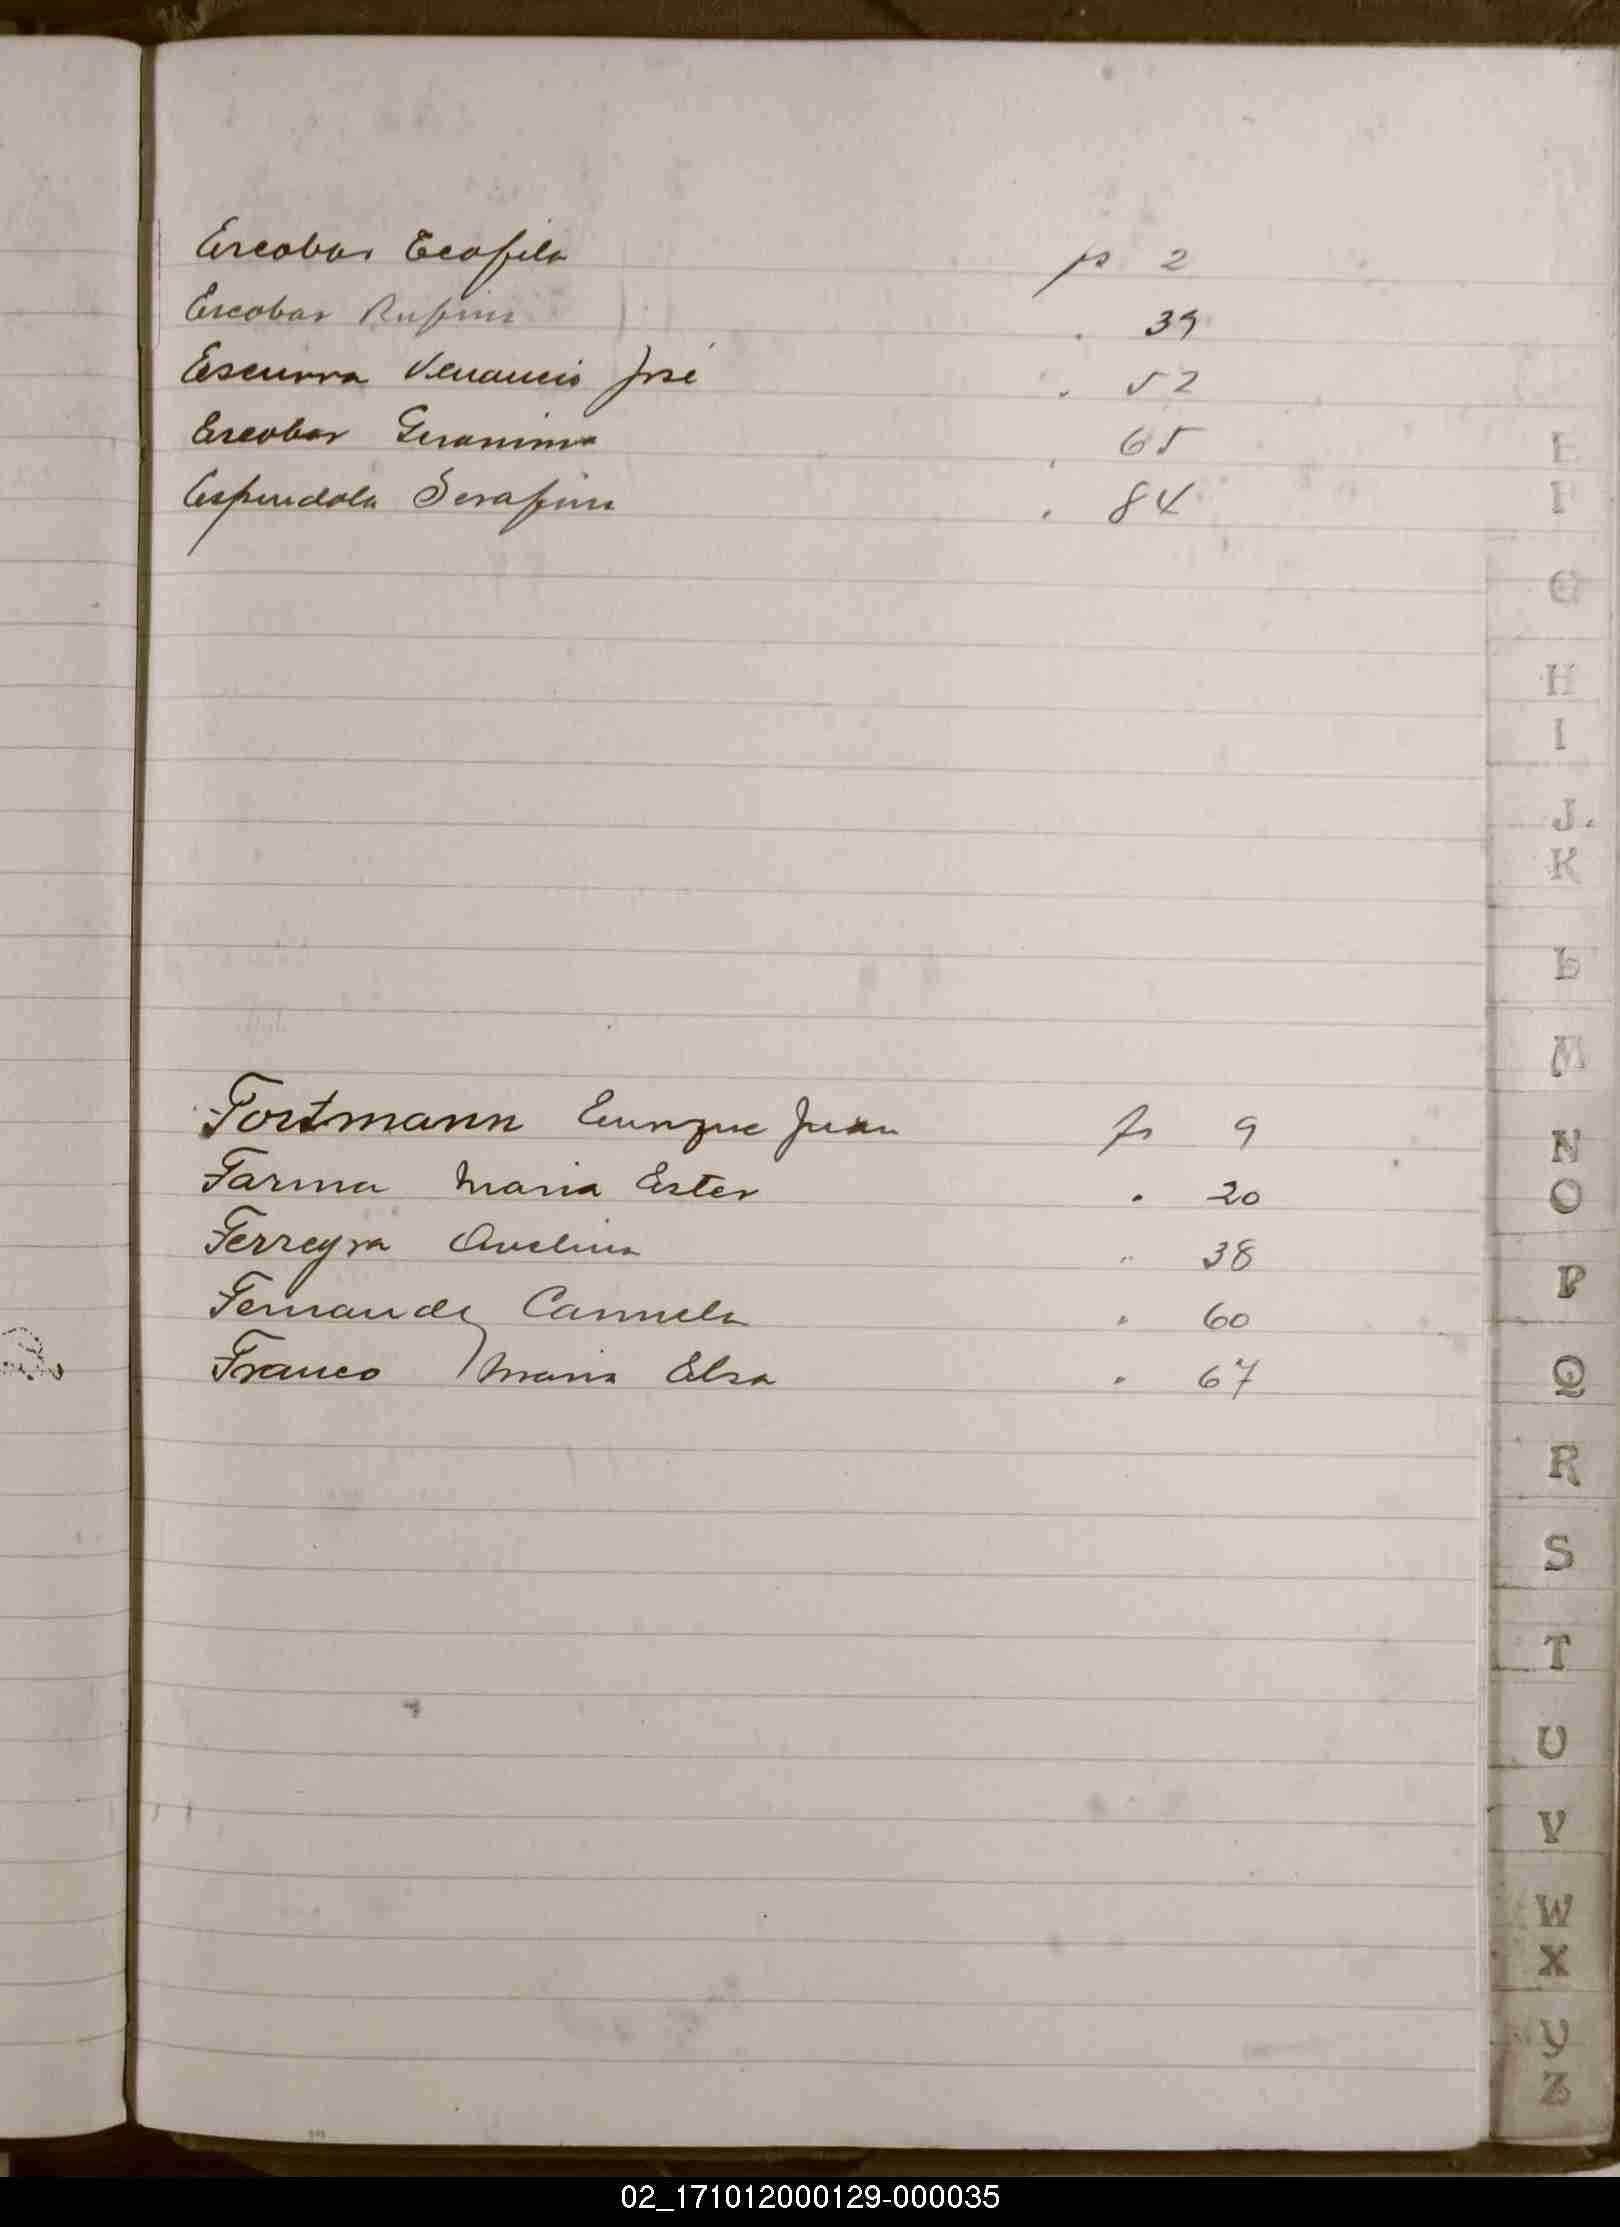 Escobar Teofila fs 2
Escobar Rufino . 39
Escurra Venancio José . 52
Escobar Geronima . 65
Espindola Serafin . 84
Fortmann Enrique Juan fs 9
Farina Maria Ester . 20
Ferreyra Avelina .. 38
Fernandez Carmela . 60
Franco Maria Elsa . 67
E
F
G
H
I
J.
K
L
M
N
O
P
Q
R
S
T
U
V
W
X
Y
Z
02_171012000129-000035